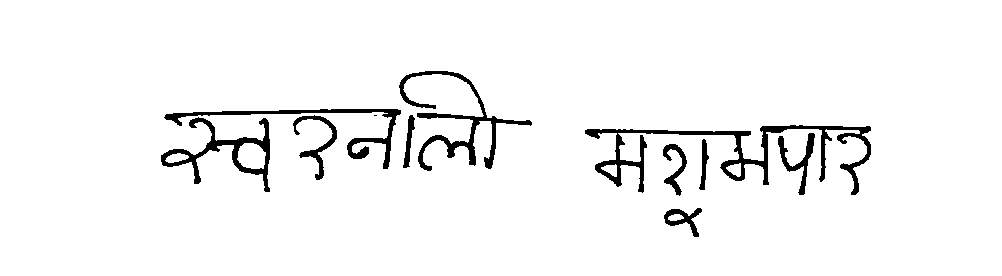 स्वरनाली मशूमपार